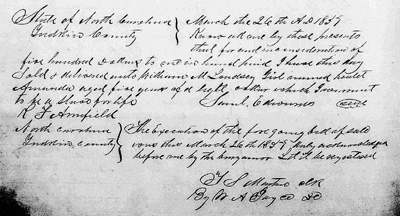 State of North Carolina } March the 26th A.D 1859
County } Know all men by these presents
that for and in consideration of
five hundred Dollars to me in hand paid I have this day
Sold & delivered unto William M Lindsey Girl named
Amanda aged five years of a light color which I warrant
to be a Slave for life Saml
R F Armfield
North Carolina } The Execution of the foregoing bill of sale
County } was this March 26th 1859 duly acknowledged
before me by the Let it be registered
T S Clk
By W A DC